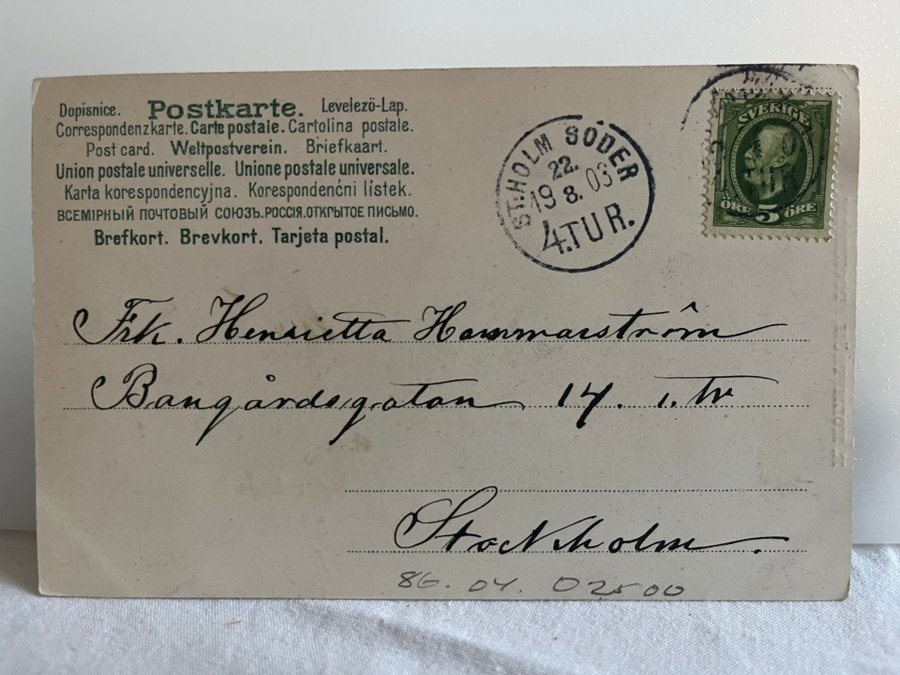 Dopisnice. Postkarte. Levelezö-Lap.
Correspondenzkarte. Carte postale. Cartolina postale.
Post card. Weltpostverein. Briefkaart.
Union postale universelle. Unione postale universale.
Karta korespondencyjna. Korespondenčni lístek.
ВСЕМІРНЫЙ ПОЧТОВЫЙ СОЮЗЪ. РОССІЯ. ОТКРЫТОЕ ПИСЬМО.
Brefkort. Brevkort. Tarjeta postal.
ST.HOLM SÖDER
22.
19 8. 03
4.TUR.
SVERIGE
ÖRE 5 ÖRE
Frk. Henrietta Hammarström
Bangårdsgatan 14. 1. tr
Stockholm.
86. 04. 02500